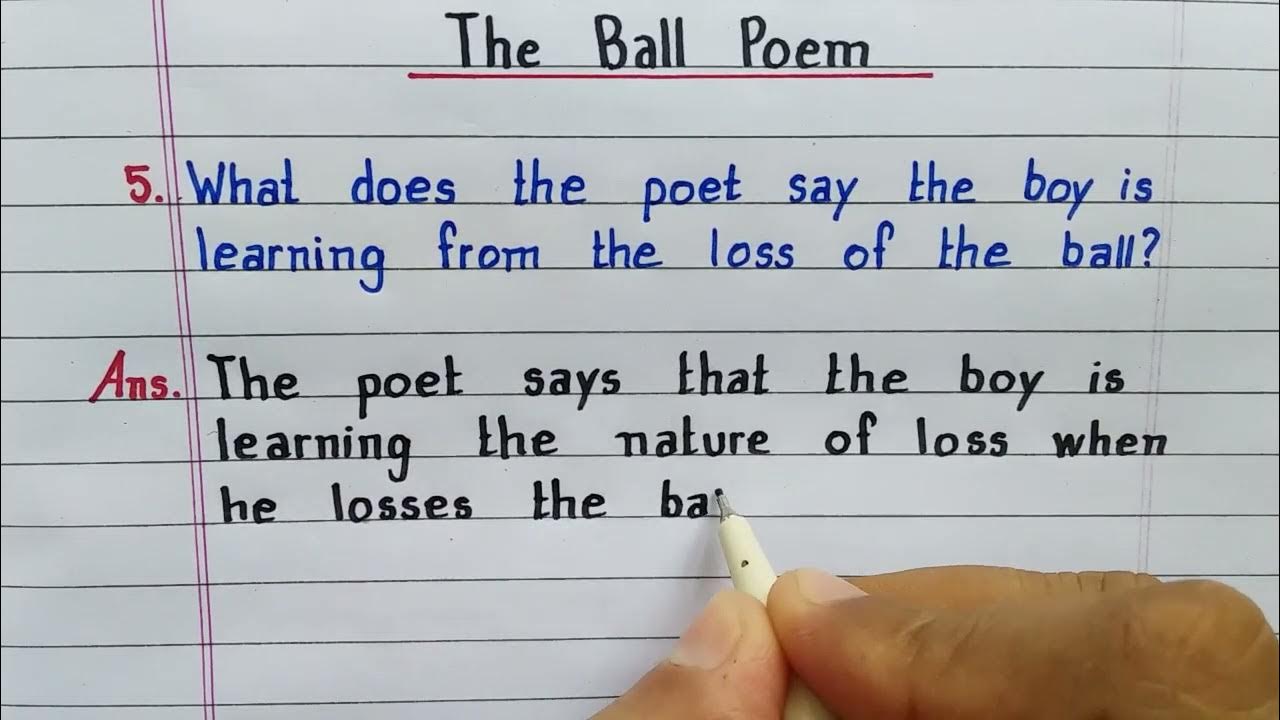 The Ball Poem
5. What does the poet say the boy is
learning from the loss of the ball?
Ans. The poet says that the boy is
learning the nature of loss when
he losses the ba